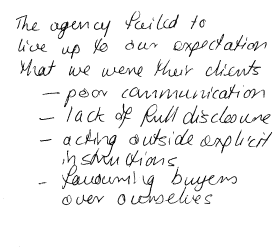 The agency failed to
live up to our expectation
that we were their clients
- poor communication
- lack of full disclosure
- acting outside explicit
instructions
- favouring buyers
over ourselves